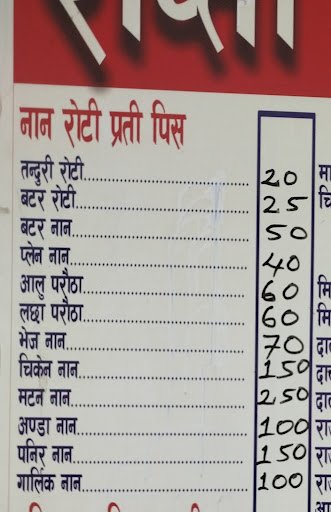 नान रोटी प्रती पिस
तन्दुरी रोटी 20
बटर रोटी 25
बटर नान 50
प्लेन नान 40
आलु परौठा 60
लछा परौठा 60
भेज नान 70
चिकेन नान 150
मटन नान 250
अण्डा नान 100
पनिर नान 150
गार्लिक नान 100